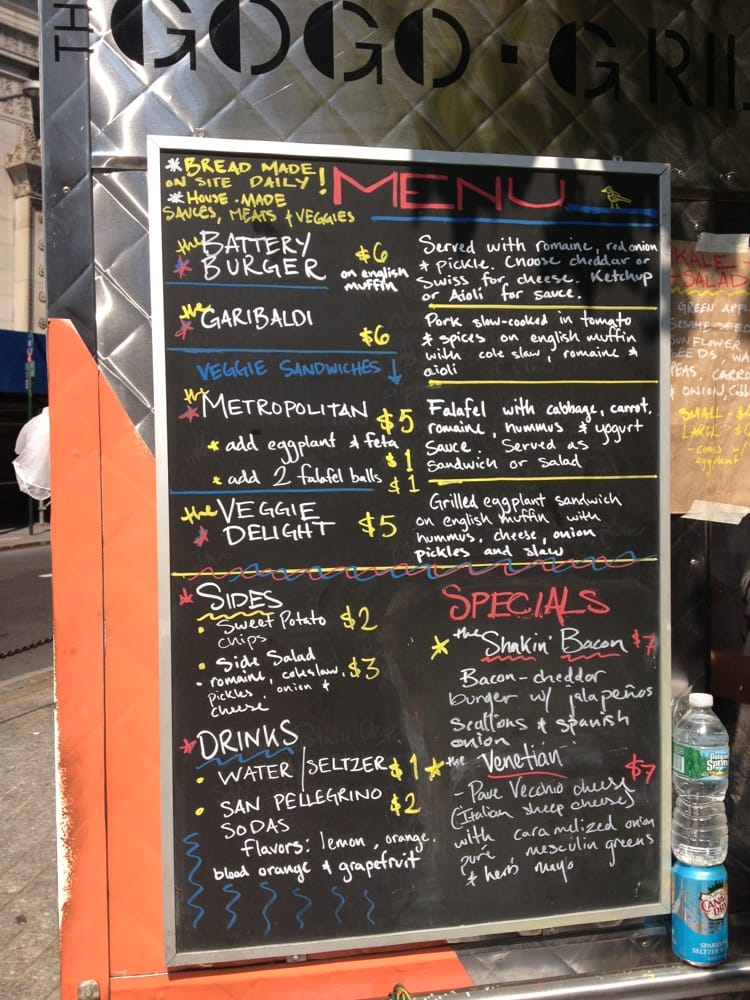 TH
GOGO · GRIL
* BREAD MADE
ON SITE DAILY!
* HOUSE-MADE
SAUCES, MEATS + VEGGIES
MENU
the BATTERY
BURGER
$6
on english
muffin
Served with romaine, red onion
+ pickle. Choose cheddar or
Swiss for cheese. Ketchup
or Aioli for sauce.
the GARIBALDI
$6
Pork slow-cooked in tomato
+ spices on english muffin
with cole slaw, romaine +
aioli
VEGGIE SANDWICHES ↓
the METROPOLITAN $5
* add eggplant + feta
$1
* add 2 falafel balls $1
Falafel with cabbage, carrot,
romaine, hummus + yogurt
sauce. Served as
sandwich or salad
the VEGGIE
DELIGHT $5
Grilled eggplant sandwich
on english muffin with
hummus, cheese, onion
pickles and slaw
* SIDES
• Sweet Potato $2
chips
• Side Salad $3
- romaine, coleslaw,
pickles, onion +
cheese
* DRINKS
• WATER/SELTZER $1
• SAN PELLEGRINO $2
SODAS
flavors: lemon, orange,
blood orange + grapefruit
SPECIALS
* the Shakin' Bacon $7
Bacon-cheddar
burger w/ jalapeños
scallions + spanish
onion
* the Venetian $7
- Pave Vecchio cheese
(Italian sheep cheese)
with caramelized onion
puré mesculin greens
+ herb mayo
KALE
SALAD
GREEN APPL
SESAME SEED
SUNFLOWER
SEEDS, WA
PEAS, CARRO
+ ONION,
SMALL - $
LARGE - $
eggplant
Spring
CANADA
DRY